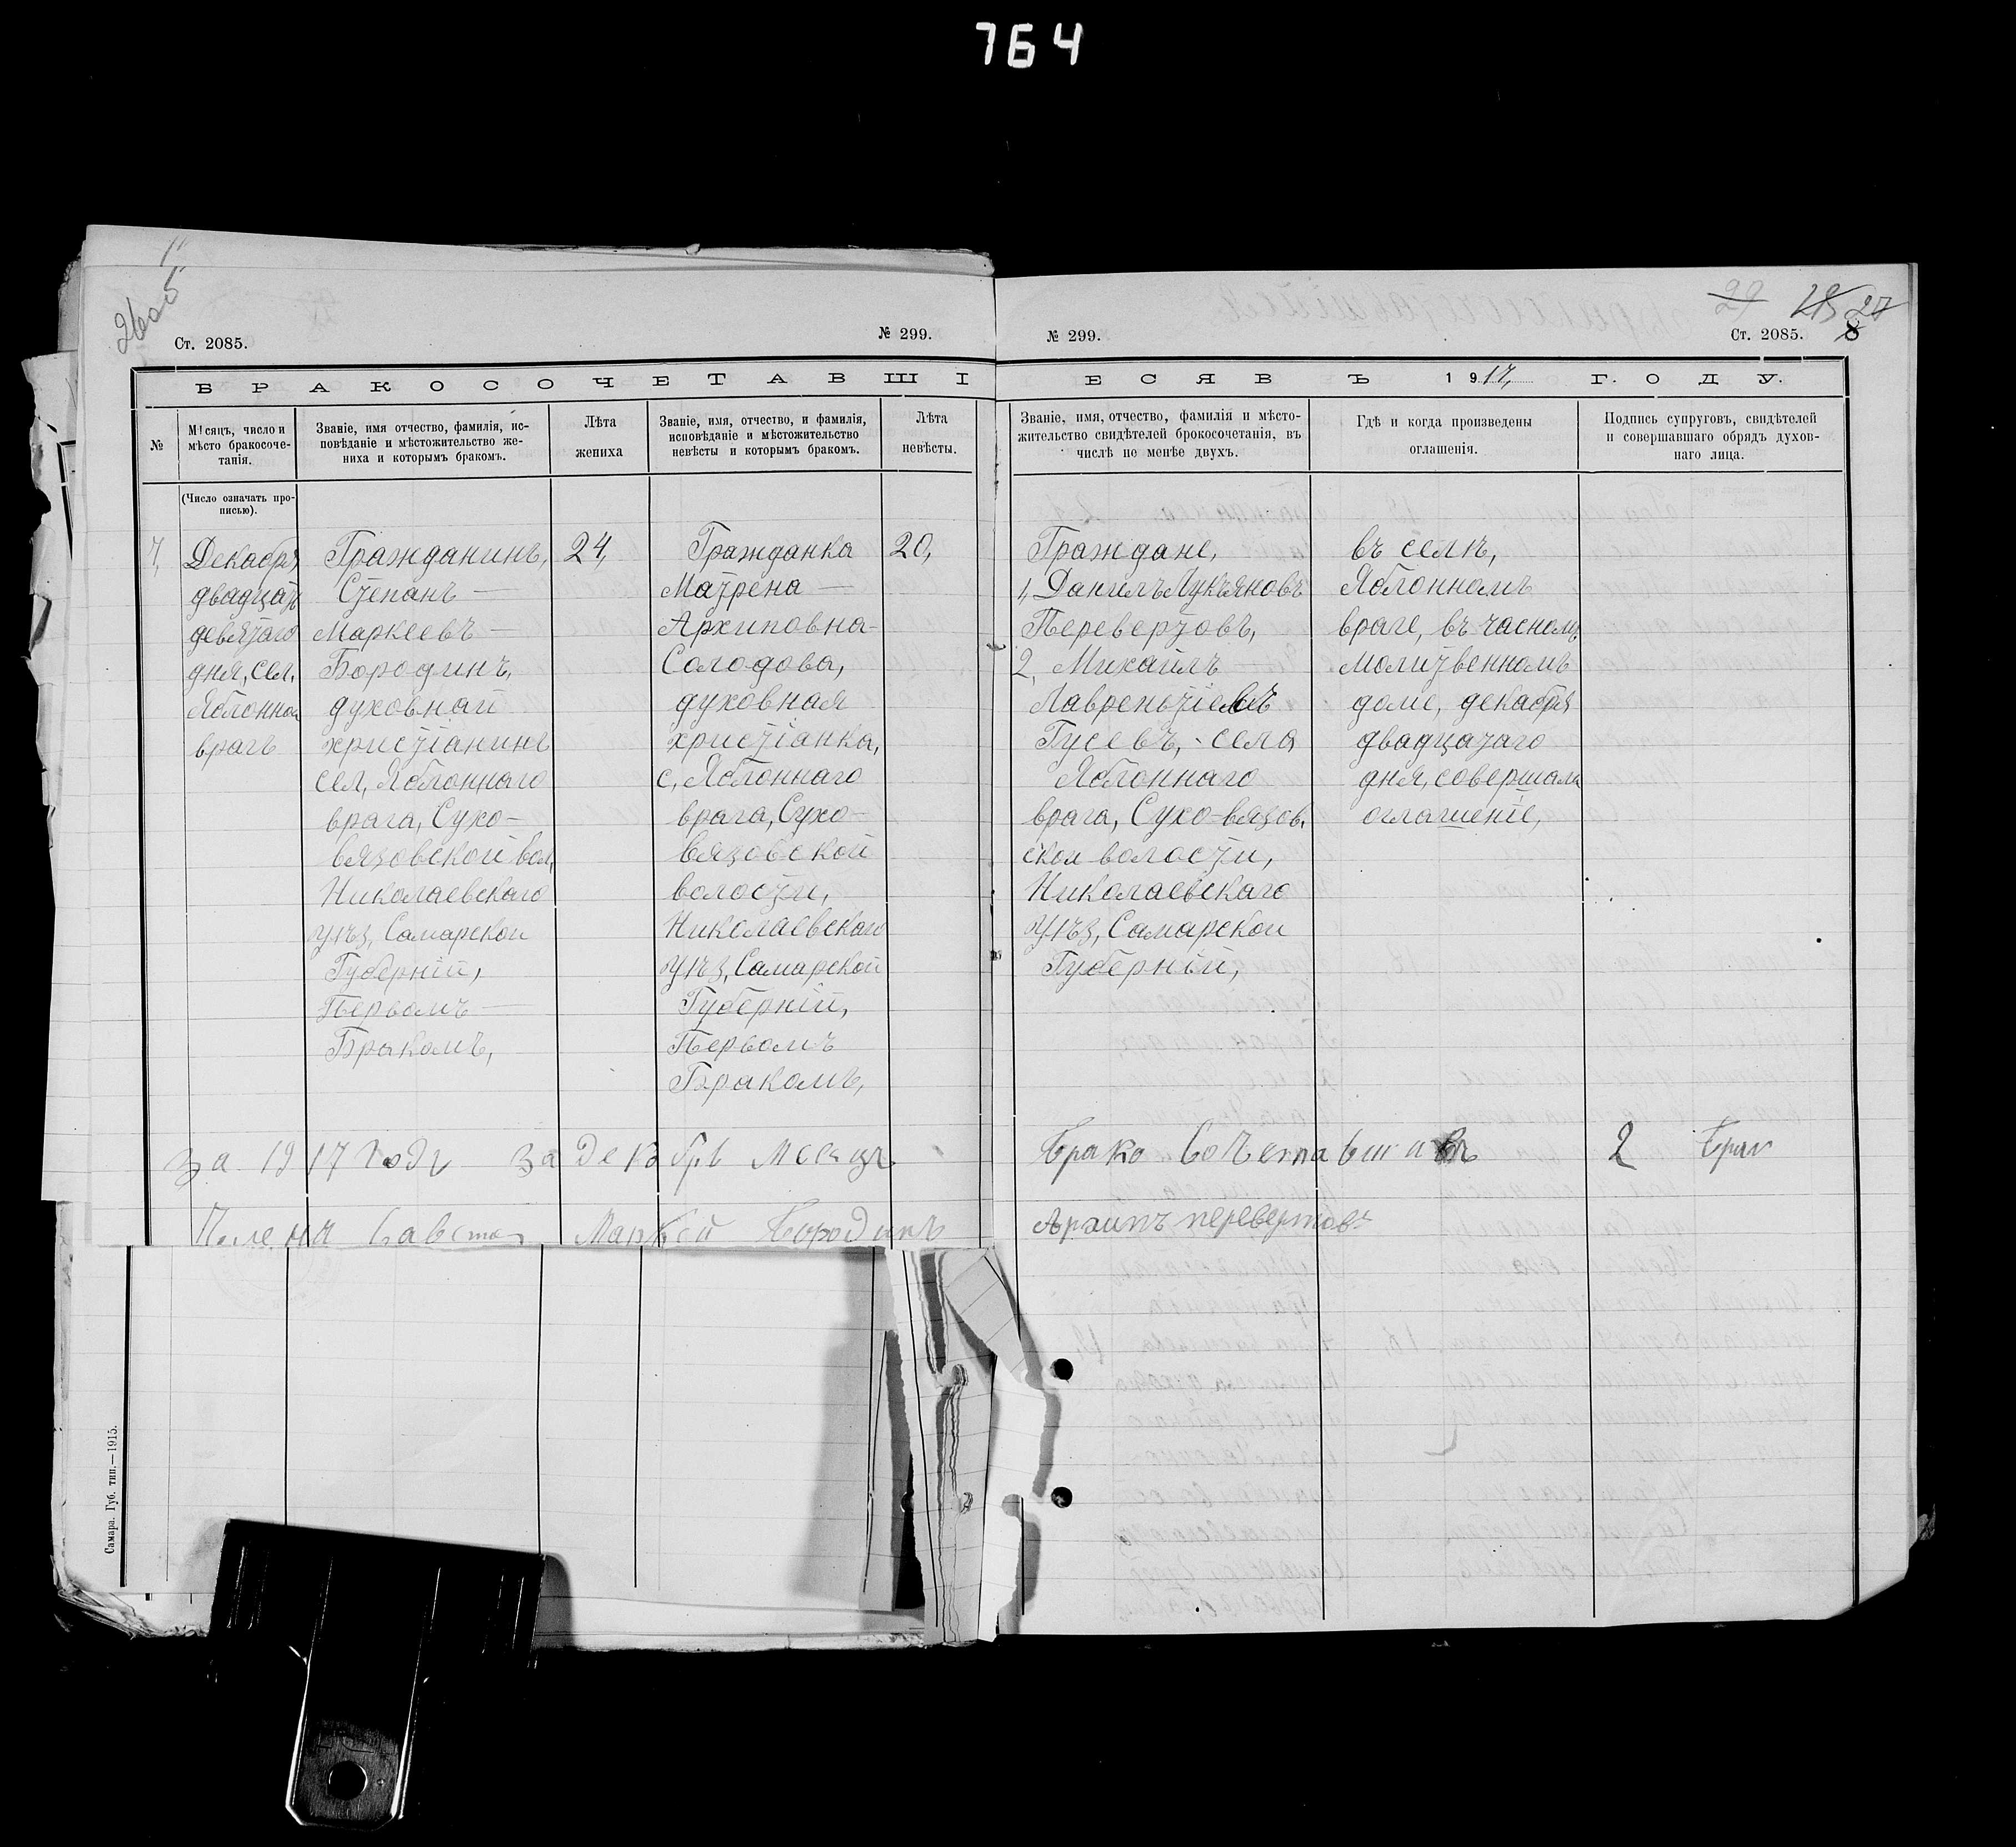 764
26 об
29 28 27
Ст. 2085.
№ 299.
№ 299.
Ст. 2085. 8
БРАКОСОЧЕТАВШІ
ЕСЯ ВЪ 1917, ГОДУ.
№
Мѣсяцъ, число и
мѣсто бракосоче-
танія.
(Число означать про-
писью).
Званіе, имя отчество, фамилія, ис-
повѣданіе и мѣстожительство же-
ниха и которымъ бракомъ.
Лѣта
жениха
Званіе, имя, отчество, и фамилія,
исповѣданіе и мѣстожительство
невѣсты и которымъ бракомъ.
Лѣта
невѣсты.
Званіе, имя, отчество, фамилія и мѣсто-
жительство свидѣтелей брокосочетанія, въ
числѣ не менѣе двухъ.
Гдѣ и когда произведены
оглашенія.
Подпись супруговъ, свидѣтелей
и совершавшаго обрядъ духов-
наго лица.
7,
Декабря
двадцать
девятаго
дня, сел,
Яблонной
врагъ
Гражданинъ,
Степанъ —
Маркеевъ —
Бородинъ,
духовнай
христіанинъ
сел, Яблоннаго
врага, Сухо-
вязовской вол,
Николаевскаго
Уѣз, Самарской
Губерній,
Первомъ —
Бракомъ,
24,
Гражданка
Матрена —
Архиповна-
Солодова,
духовная
христіанка,
с, Яблоннаго
врага, Сухо-
вязовской
волости,
Николаевскаго
уѣз, Самарской
Губерній,
Первомъ
Бракомъ,
20,
Граждане,
1, Данилъ Лукъяновъ
Перевертовъ,
2, Михаилъ —
Лаврентіевъ
Гусевъ, - села
Яблоннаго
врага, Сухо-вязов,
ской волости,
Николаевскаго
Уѣз, Самарской
Губерній,
въ селѣ,
Яблонномъ
враге, въ часномъ
молитвенномъ
доме, декабря
двадцатаго
дня, совершали
оглашеніе,
за 1917 годъ за декабрь месецъ
Брако Сочетавшихъ 2 Брак
Маркей Бородинъ
Архипъ перевертовъ
Самара. Губ. тип.—1915.